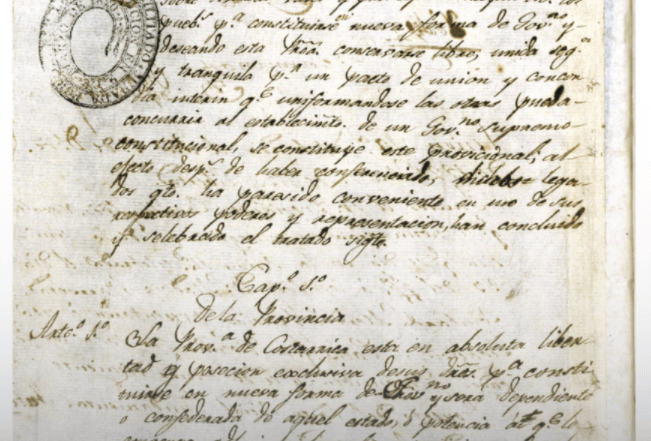 pueb.s p.a constituirse en nueva forma de Gov.no y
deseando esta Prov.a conservarse libre, unida seg.a
y tranquila p.r un pacto de union y concor
dia interin q.e uniformandose las otras pueda
concurrir al establecim.to de un Gov.no Supremo
constitucional, se constituye este provicional; al
efecto desp.s de haber conferenciado, dichos lega
dos qto. ha paresido conveniente en uso de sus
respectivos poderes y representacion, han concluido
y celebrado el tratado sigte.
Cap.o 1.o
De la Provincia
Artc.o 1.o La Prov.a de Costarrica esta en absoluta liber
tad y posecion exclusiva de sus dros. p.a consti
tuirse en nueva forma de Gov.no y sera dependiente
o confederada de aquel estado, ó potencia al q.e le